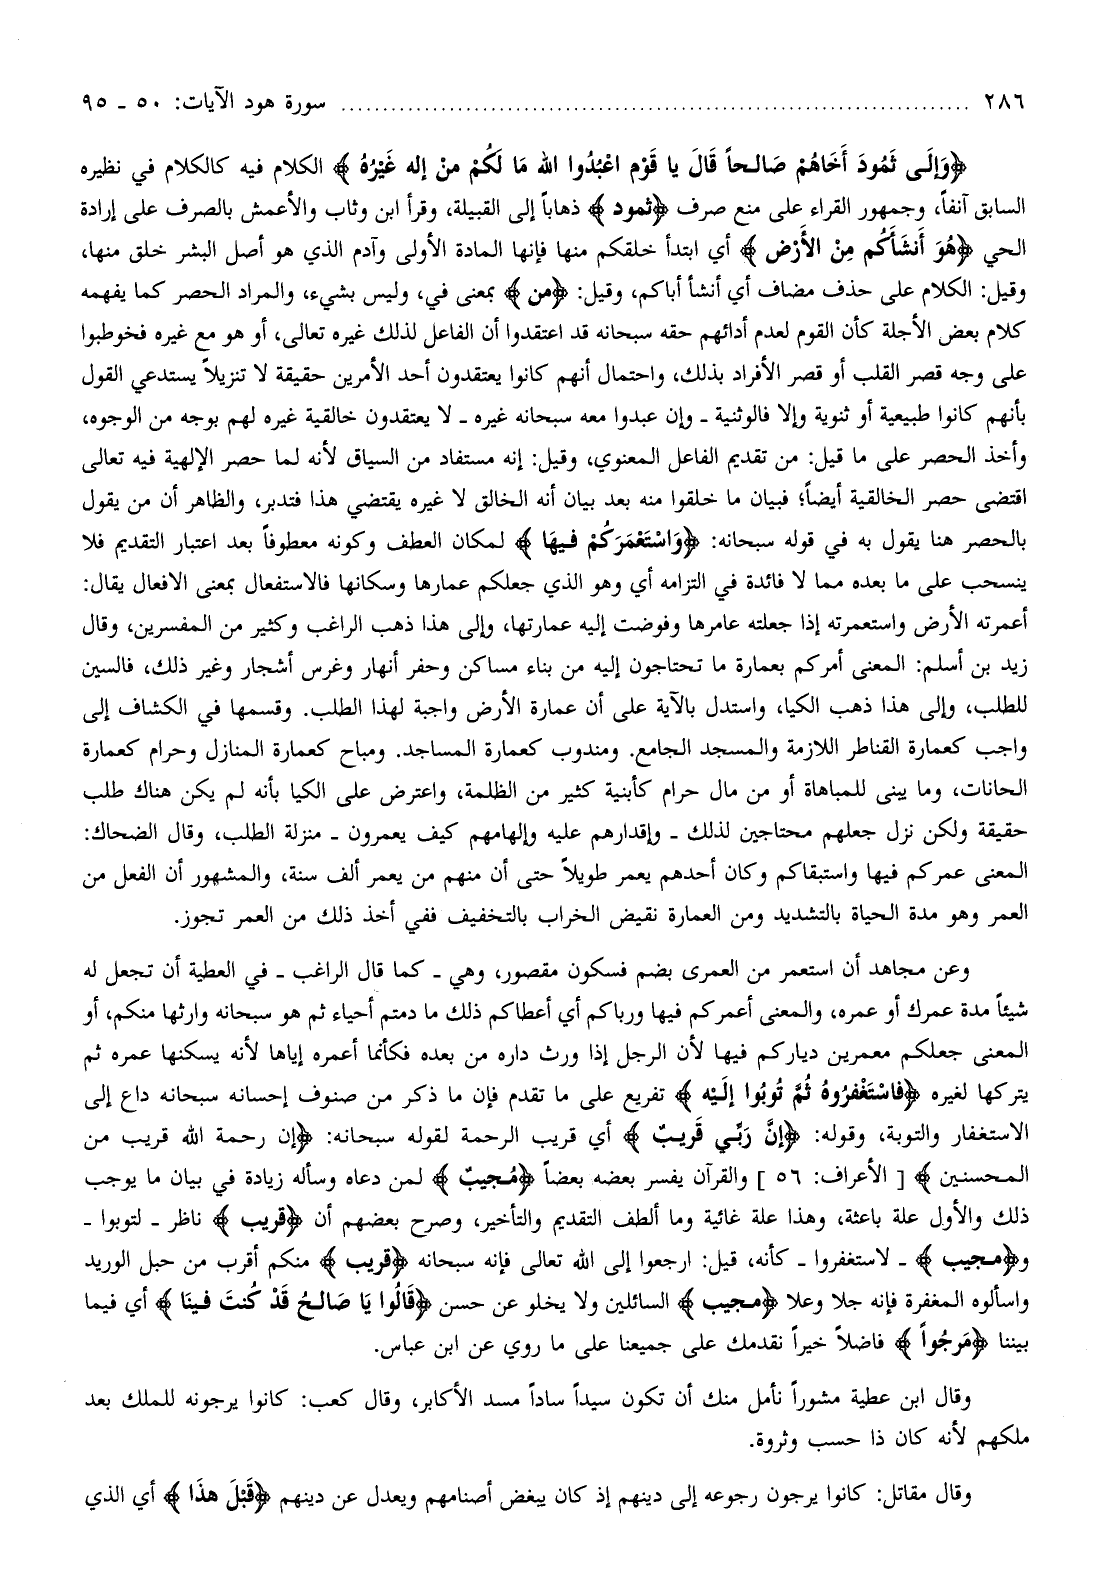 ٢٨٦ ........ سورة هود الآيات: ٥٠ ـ ٩٥
﴿وَإِلَى ثَمُودَ أَخَاهُمْ صَالِحاً قَالَ يا قَوْمِ اعْبُدُوا الله مَا لَكُمْ مِنْ إله غَيْرُهُ﴾ الكلام فيه كالكلام في نظيره
السابق آنفاً، وجمهور القراء على منع صرف ﴿ثمود﴾ ذهاباً إلى القبيلة، وقرأ ابن وثاب والأعمش بالصرف على إرادة
الحي ﴿هُوَ أَنشَأَكُم مِنْ الأَرْضِ﴾ أي ابتدأ خلقكم منها فإنها المادة الأولى وآدم الذي هو أصل البشر خلق منها،
وقيل: الكلام على حذف مضاف أي أنشأ أباكم، وقيل: ﴿من﴾ بمعنى في، وليس بشيء، والمراد الحصر كما يفهمه
كلام بعض الأجلة كأن القوم لعدم أدائهم حقه سبحانه قد اعتقدوا أن الفاعل لذلك غيره تعالى، أو هو مع غيره فخوطبوا
على وجه قصر القلب أو قصر الأفراد بذلك، واحتمال أنهم كانوا يعتقدون أحد الأمرين حقيقة لا تنزيلاً يستدعي القول
بأنهم كانوا طبيعية أو ثنوية وإلا فالوثنية ـ وإن عبدوا معه سبحانه غيره ـ لا يعتقدون خالقية غيره لهم بوجه من الوجوه،
وأخذ الحصر على ما قيل: من تقديم الفاعل المعنوي، وقيل: إنه مستفاد من السياق لأنه لما حصر الإلهية فيه تعالى
اقتضى حصر الخالقية أيضاً؛ فبيان ما خلقوا منه بعد بيان أنه الخالق لا غيره يقتضي هذا فتدبر، والظاهر أن من يقول
بالحصر هنا يقول به في قوله سبحانه: ﴿وَاسْتَعْمَرَكُمْ فيهَا﴾ لمكان العطف وكونه معطوفاً بعد اعتبار التقديم فلا
ينسحب على ما بعده مما لا فائدة في التزامه أي وهو الذي جعلكم عمارها وسكانها فالاستفعال بمعنى الافعال يقال:
أعمرته الأرض واستعمرته إذا جعلته عامرها وفوضت إليه عمارتها، وإلى هذا ذهب الراغب وكثير من المفسرين، وقال
زيد بن أسلم: المعنى أمركم بعمارة ما تحتاجون إليه من بناء مساكن وحفر أنهار وغرس أشجار وغير ذلك، فالسين
للطلب، وإلى هذا ذهب الكيا، واستدل بالآية على أن عمارة الأرض واجبة لهذا الطلب. وقسمها في الكشاف إلى
واجب كعمارة القناطر اللازمة والمسجد الجامع. ومندوب كعمارة المساجد. ومباح كعمارة المنازل وحرام كعمارة
الحانات، وما يبنى للمباهاة أو من مال حرام كأبنية كثير من الظلمة، واعترض على الكيا بأنه لم يكن هناك طلب
حقيقة ولكن نزل جعلهم محتاجين لذلك ـ وإقدارهم عليه وإلهامهم كيف يعمرون ـ منزلة الطلب، وقال الضحاك:
المعنى عمركم فيها واستبقاكم وكان أحدهم يعمر طويلاً حتى أن منهم من يعمر ألف سنة، والمشهور أن الفعل من
العمر وهو مدة الحياة بالتشديد ومن العمارة نقيض الخراب بالتخفيف ففي أخذ ذلك من العمر تجوز.
وعن مجاهد أن استعمر من العمرى بضم فسكون مقصور، وهي ـ كما قال الراغب ـ في العطية أن تجعل له
شيئاً مدة عمرك أو عمره، والمعنى أعمركم فيها ورباكم أي أعطاكم ذلك ما دمتم أحياء ثم هو سبحانه وارثها منكم، أو
المعنى جعلكم معمرين دياركم فيها لأن الرجل إذا ورث داره من بعده فكأنما أعمره إياها لأنه يسكنها عمره ثم
يتركها لغيره ﴿فَاسْتَغْفرُوهُ ثُمَّ تُوبُوا إلَيْه﴾ تفريع على ما تقدم فإن ما ذكر من صنوف إحسانه سبحانه داع إلى
الاستغفار والتوبة، وقوله: ﴿إنَّ رَبِّي قَريبٌ﴾ أي قريب الرحمة لقوله سبحانه: ﴿إن رحمة الله قريب من
المحسنين﴾ [ الأعراف: ٥٦ ] والقرآن يفسر بعضه بعضاً ﴿مُجيبٌ﴾ لمن دعاه وسأله زيادة في بيان ما يوجب
ذلك والأول علة باعثة، وهذا علة غائية وما ألطف التقديم والتأخير، وصرح بعضهم أن ﴿قريب﴾ ناظر ـ لتوبوا ـ
و﴿مجيب﴾ ـ لاستغفروا ـ كأنه، قيل: ارجعوا إلى الله تعالى فإنه سبحانه ﴿قريب﴾ منكم أقرب من حبل الوريد
واسألوه المغفرة فإنه جلا وعلا ﴿مجيب﴾ السائلين ولا يخلو عن حسن ﴿قَالُوا يَا صَالحُ قَدْ كُنتَ فينَا﴾ أي فيما
بيننا ﴿مَرجُواً﴾ فاضلاً خيراً نقدمك على جميعنا على ما روي عن ابن عباس.
وقال ابن عطية مشوراً نأمل منك أن تكون سيداً ساداً مسد الأكابر، وقال كعب: كانوا يرجونه للملك بعد
ملكهم لأنه كان ذا حسب وثروة.
وقال مقاتل: كانوا يرجون رجوعه إلى دينهم إذ كان يبغض أصنامهم ويعدل عن دينهم ﴿قَبْلَ هذَا﴾ أي الذي